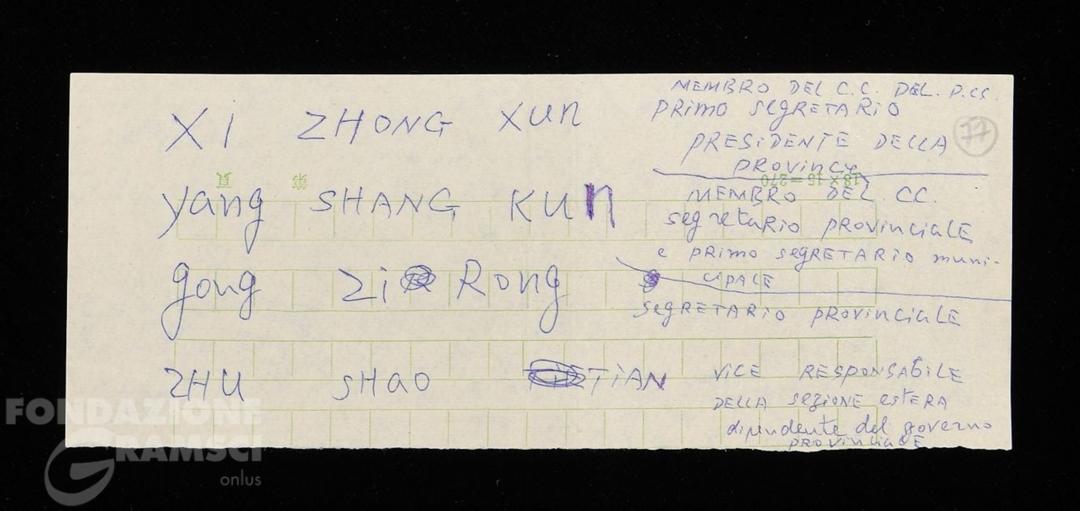 MEMBRO DEL C.C. DEL. P.CS.
XI ZHONG XUN
PRIMO SEGRETARIO
PRESIDENTE DELLA
PROVINCY
77
頁 第
18 x 15 = 270
yang SHANG KUN
MEMBRO DEL CC.
segretario PROVINCIALE
e PRIMO SEGRETARIO MUNI-
CIPALE
gong ZI Rong
segretario PROVINCIALE
ZHU SHAO TIAN
VICE RESPONSABILE
DELLA SEZIONE ESTERA
dipendente del governo
PROVINCIALE
FONDAZIONE
GRAMSCI
onlus